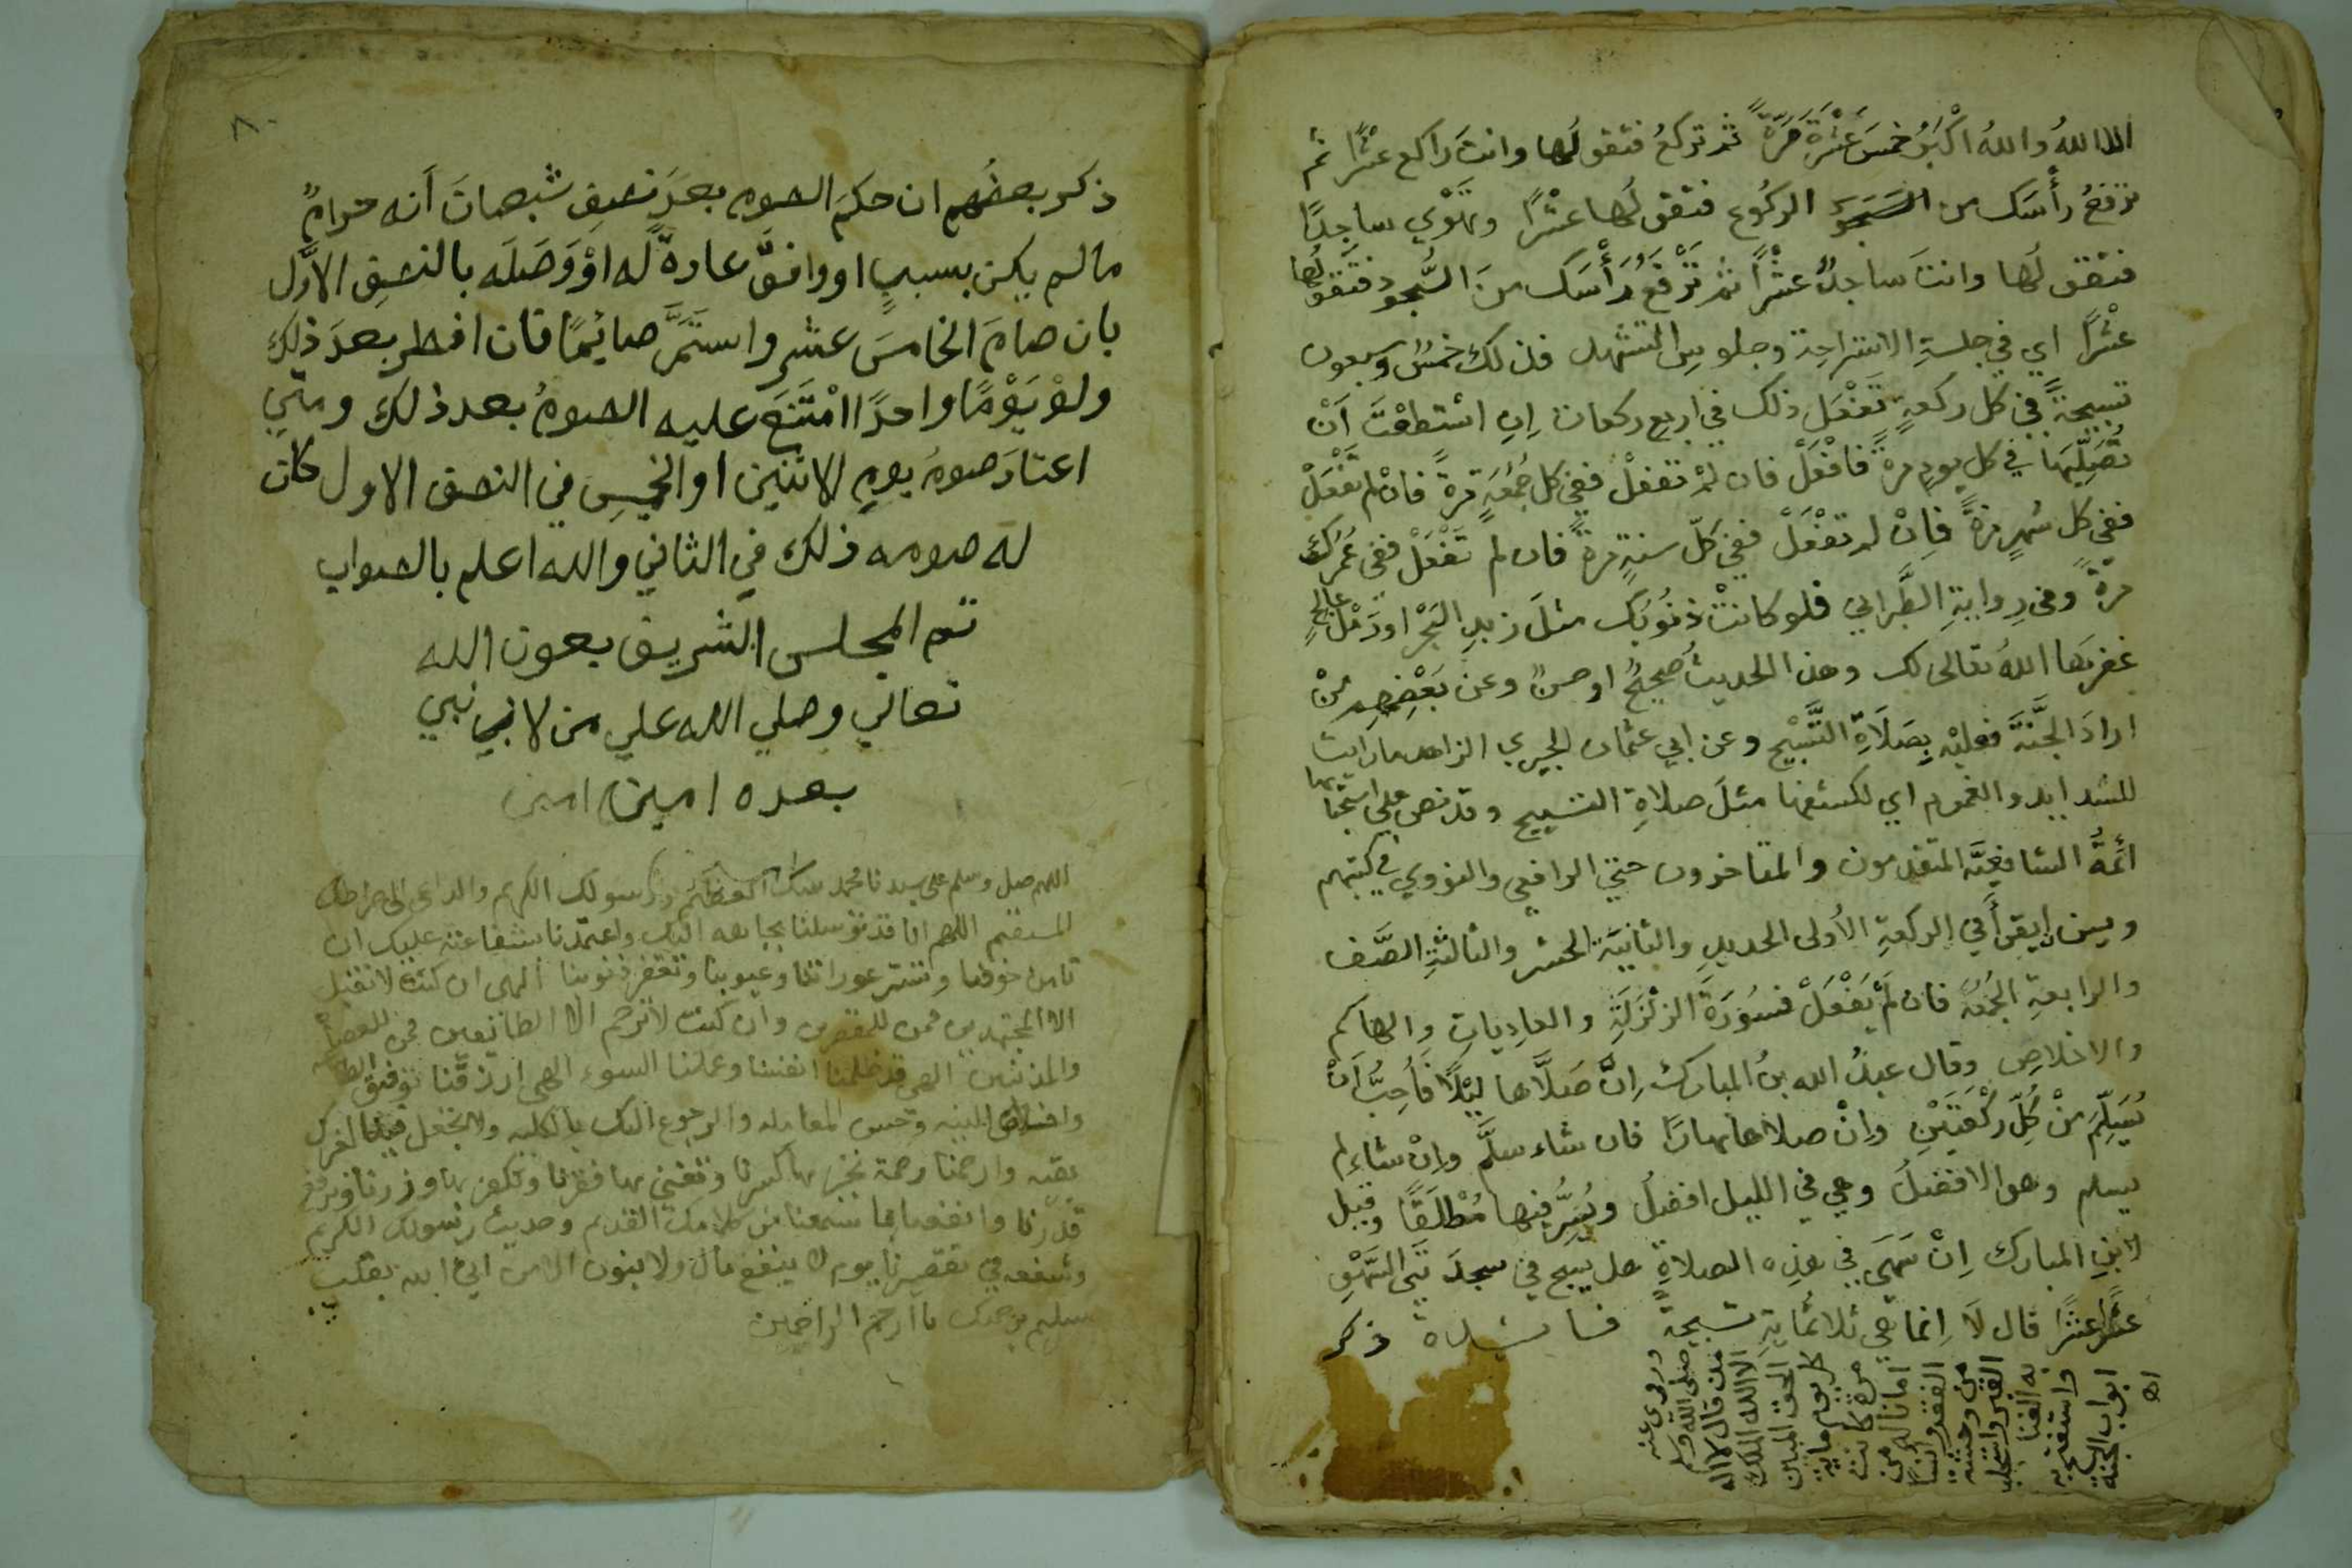 الا الله والله اكْبَرُ خمسَ عَشْرَةَ مَرَّةً ثم تركعُ فتقولُها وانتَ راكع عشْرًا ثم
ترفعُ رأْسَك من الركُوع فتقولُها عشْرًا وتَهْوي ساجدًا
فتقولُها وانتَ ساجدٌ عشْرًا ثم تَرْفَعُ رَأْسَك منَ السُّجود فتَقولُها
عشْرًا اي في جلسةِ الاستراحةِ وجلوسِ التشهد فذلك خمسٌ وسبعون
تسبيحةً في كل ركعةٍ تَفْعَل ذلك في اربع ركعات اِنِ اسْتَطعْتَ اَنْ
تُصَلِّيَها في كل يومٍ مرةً فافْعَلْ فان لمْ تفعلْ ففي كل جُمُعَةٍ مرةً فانْ لم تَفْعَلْ
ففي كل شهرٍ مرةً فاِنْ لم تفْعَلْ ففي كلّ سنةٍ مرةً فان لم تَفْعَلْ ففي عُمُركَ
مرةً وفي رِوايةِ الطَّبراني فلو كانتْ ذنُوبُك مثلَ زبدِ البَحْر او رَمْل عالجٍ
غفرَها اللهُ تعالى لك وهذا الحديثُ صحيحٌ او حسنٌ وعن بَعْضِهِم مَنْ
ارادَ الجَنَّةَ فعليْه بِصَلَاةِ التَّسْبيْحِ وعن ابي عثمان الحيري الزاهد ما رايت
للشدايد والغموم اي لكشفها مثلَ صلاةِ التسبيح وقد نص على استحبابها
ائمةُ الشافعيَّة المتقدمون والمتاخرون حتي الرافعي والنووي في كتبهم
ويسن ان يقرأَ في الركعةِ الأولى الحديدِ والثانيَة الحشر والثالثةِ الصَّف
والرابعةِ الجُمُعَة فان لمْ يَفْعَلْ فسُوْرَةَ الزلْزَلَةِ والعادِياتِ والهاكم
والاخلاصِ وقال عبدُ الله بنُ المبارك اِنْ صَلَّاها ليْلًا فأُحِبُّ اَنْ
يُسَلِّمَ مِنْ كُلِّ رَكْعَتَيْنِ واِنْ صلاها نهارًا فان شاء سلَّم واِنْ شاء لم
يسلم وهو الافضلُ وهي في الليل افضلُ ويُسِرُّ فيها مُطْلَقًا وقيل
لابنِ المبارك اِنْ سَهَي في هذِه الصلاةِ هل يسبح في سجدَتَي السَّهْوِ
عشْرًا عشْرًا قال لَا اِنما هي ثلاثُمايةِ تسبيحة فائدة ذكر
وروي عنه
صلى الله عليه وسلم
من قال لا اله
الا الله الملك
الحق المبين
كل يوم ماية
مرة كانت
امانا له من
الفقر وانسا
من وحشة
القبر واستجلب
به الغنا
واستفتح به
ابواب الجنة
اه
٨٠
ذكر بعضُهم ان حكمَ الصوم بعدَ نصفِ شعبانَ أنه حرامٌ
مالم يكن بسببٍ او وافقَّ عادةً له اوْ وَصَلَه بالنصفِ الاوَّل
بان صامَ الخامسَ عشر واستَمَّر صائِمًا فان افطر بعدَ ذلك
ولوْ يَوْمًا واحدًا امْتَنَعَ عليه الصومُ بعد ذلك ومتي
اعتادَ صومَ يومِ الاثنين او الخميسِ في النصف الاول كان
له صومه ذلك في الثاني والله اعلم بالصواب
تم المجلس الشريف بعون الله
تعالي وصلي الله علي من لا نبي
بعده امين امين
اللهم صل وسلم على سيدنا محمد نبيك العظيم ورسولك الكريم والداعي الى صراطك
المستقيم اللهم انا قد توسلنا بجاهه اليك واعتمدنا بشفاعته عليك ان
تامن خوفنا وتستر عوراتنا وعيوبنا وتغفر ذنوبنا الهى ان كنت لا تقبل
الا المجتهدين فمن للمقصرين وان كنت لا ترحم الا الطائعين فمن للعصاة
والمذنبين الهى قد ظلمنا انفسنا وعملنا السوء الهى ارزقنا توفيق الطاعة
واخلاص النية وحسن المعاملة والرجوع اليك بالكليه ولا تجعل فينا لغيرك
بقيه وارحمنا رحمة تجبر بها كسرنا وتغني بها فقرنا وتكفر بها وزرنا وترفع بها
قدرنا وانفعنا بما سمعنا من كلامك القديم وحديث رسولك الكريم
وشفعه في تقصيرنا يوم لا ينفع مال ولا بنون الا من اتي الله بقلب
سليم برحمتك يا ارحم الراحمين